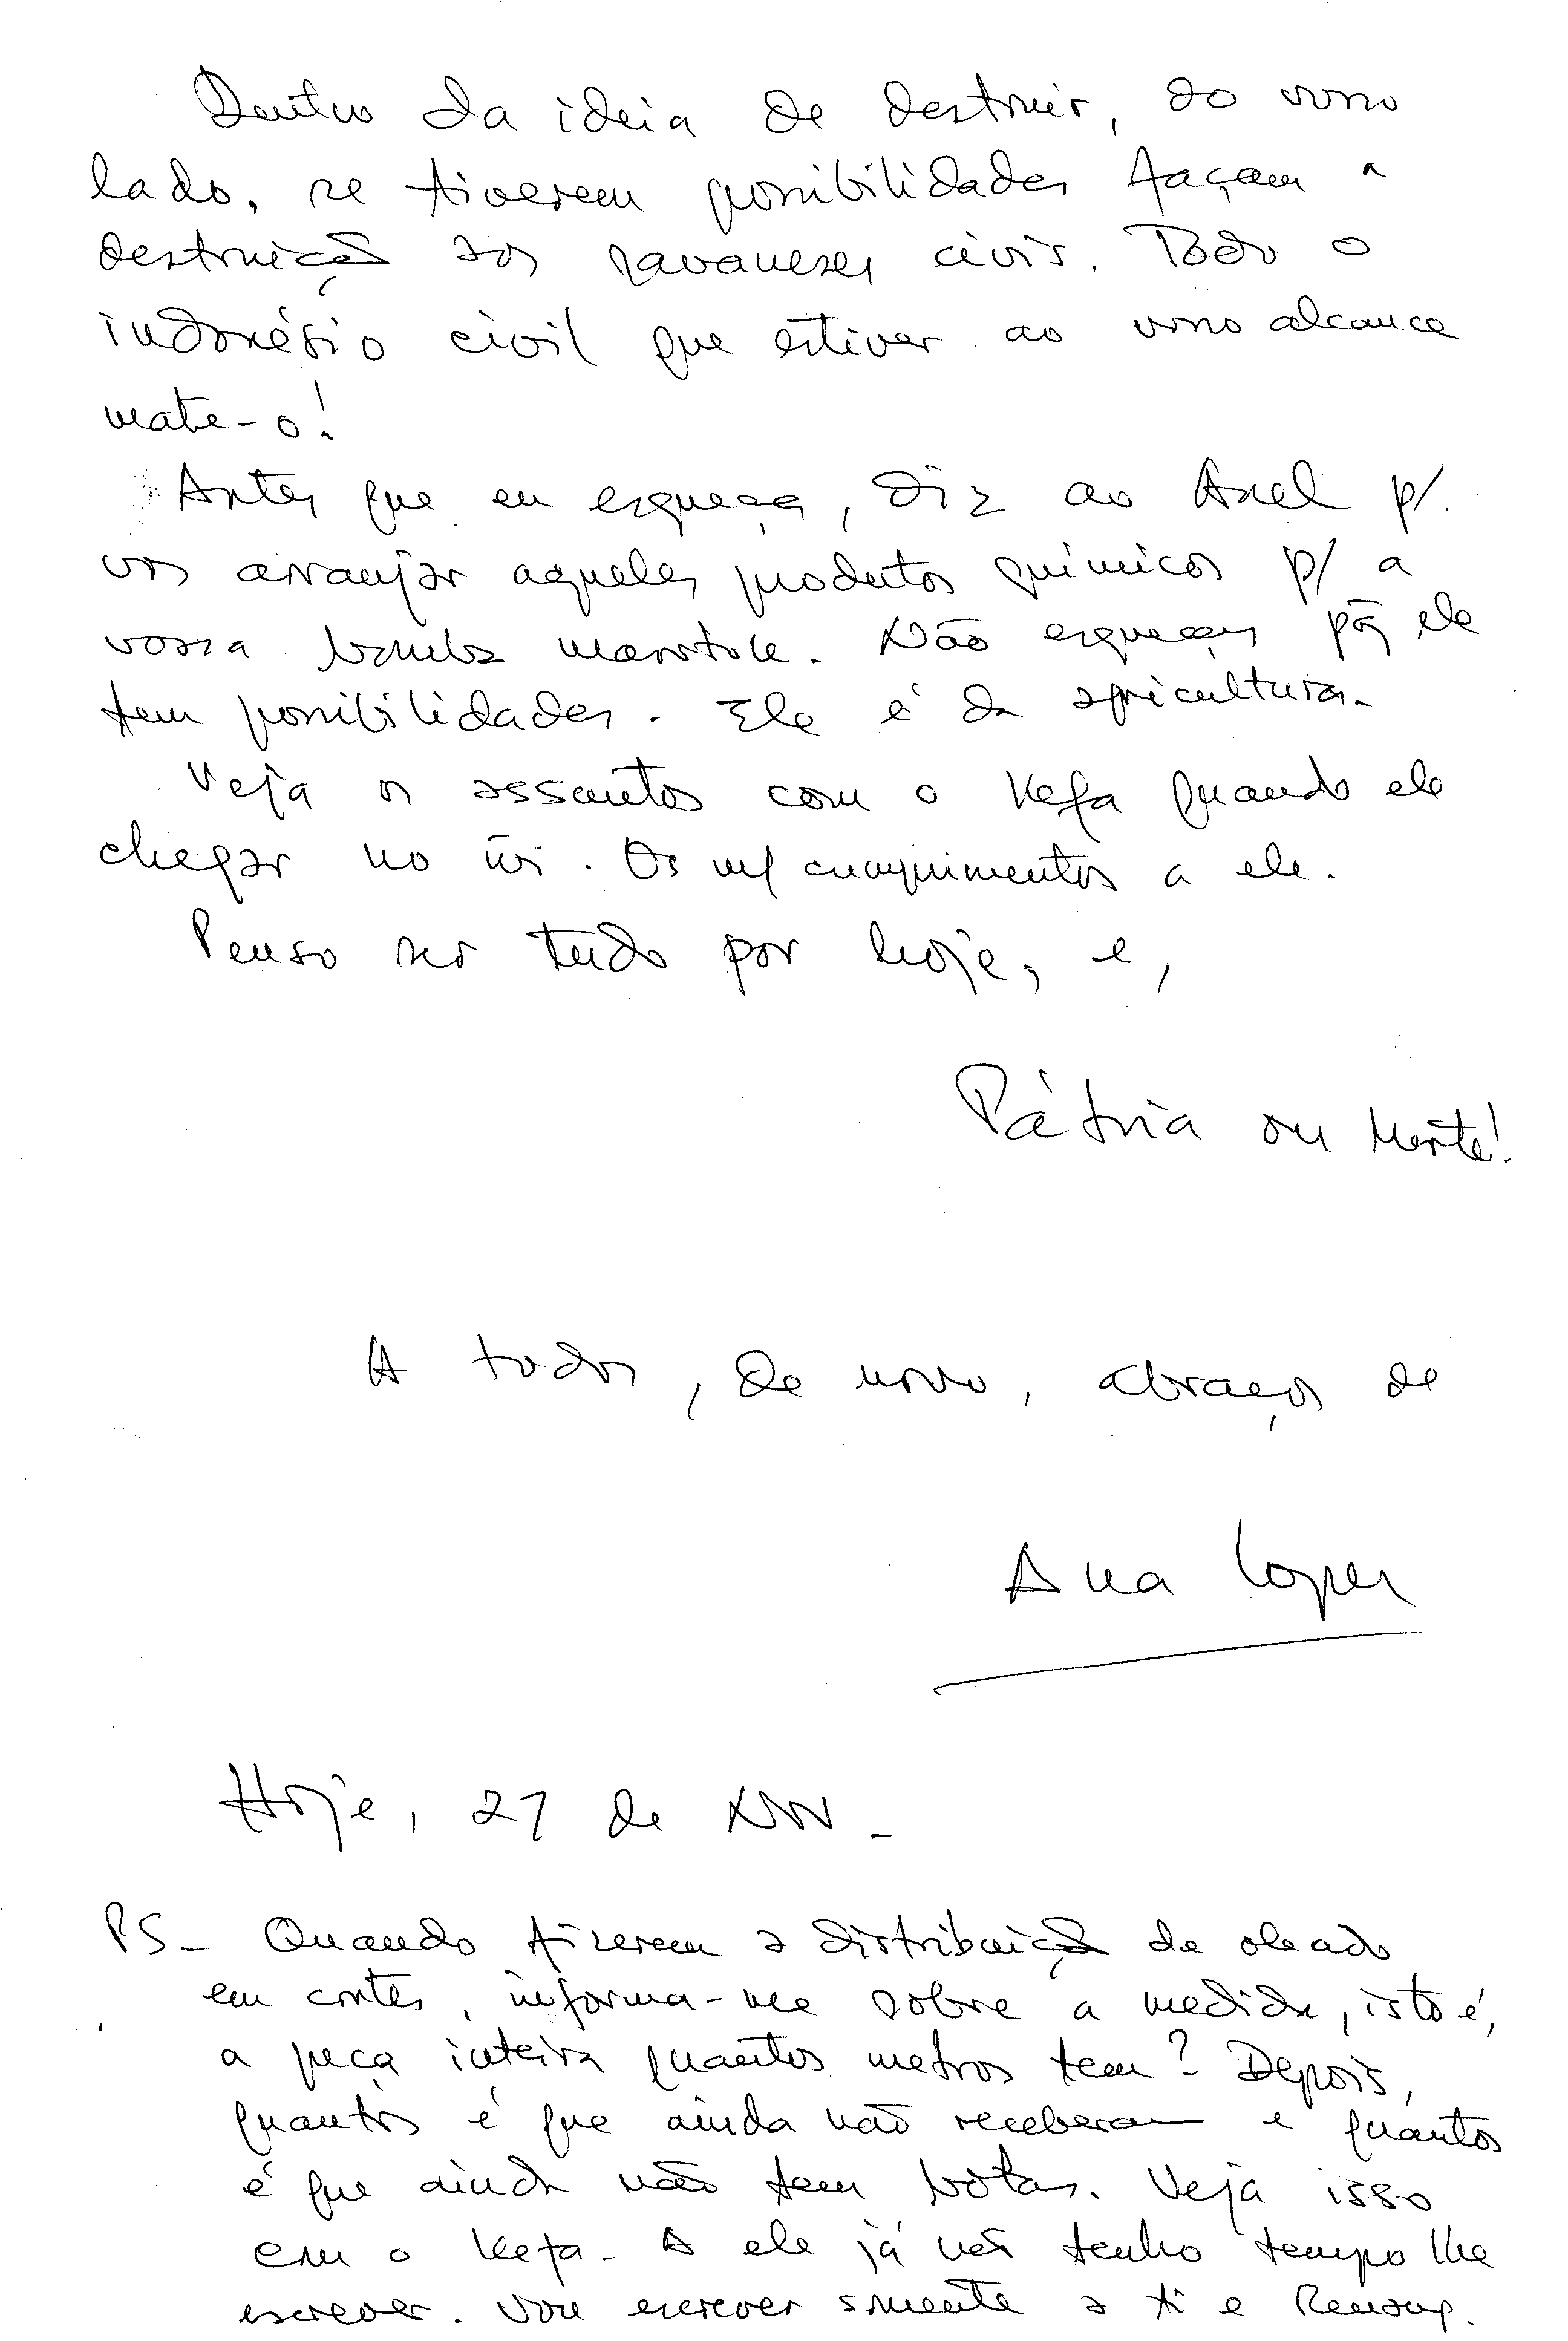 Dentro da ideia de destruir, do vosso
lado, se tiverem possibilidades façam a
destruição dos javaneses civis. Todo o
indonésio civil que estiver ao vosso alcance
mate-o!
Antes que eu esqueça, diz ao Axel p/.
vos arranjar aqueles produtos químicos p/ a
vossa bomba. Não esqueçes pq̃ ele
tem possibilidades. Ele é da agricultura.
Veja os assuntos com o Kefa quando ele
chegar no. Os m/ cumprimentos a ele.
Penso ser tudo por hoje, e,
Pátria ou Morte!
A todos, de novo, abraços de
Ana Lopes
Hoje, 27 de Nov -
PS - Quando fizerem a distribuição de oleado
em cortes, informa-me sobre a medida, isto é,
a peça inteira quantos metros tem? Depois,
quantos é que ainda não receberam e quantos
é que ainda não tem botas. Veja isso
com o Kefa. A ele já não tenho tempo lhe
escrever. Vou escrever somente a ti e